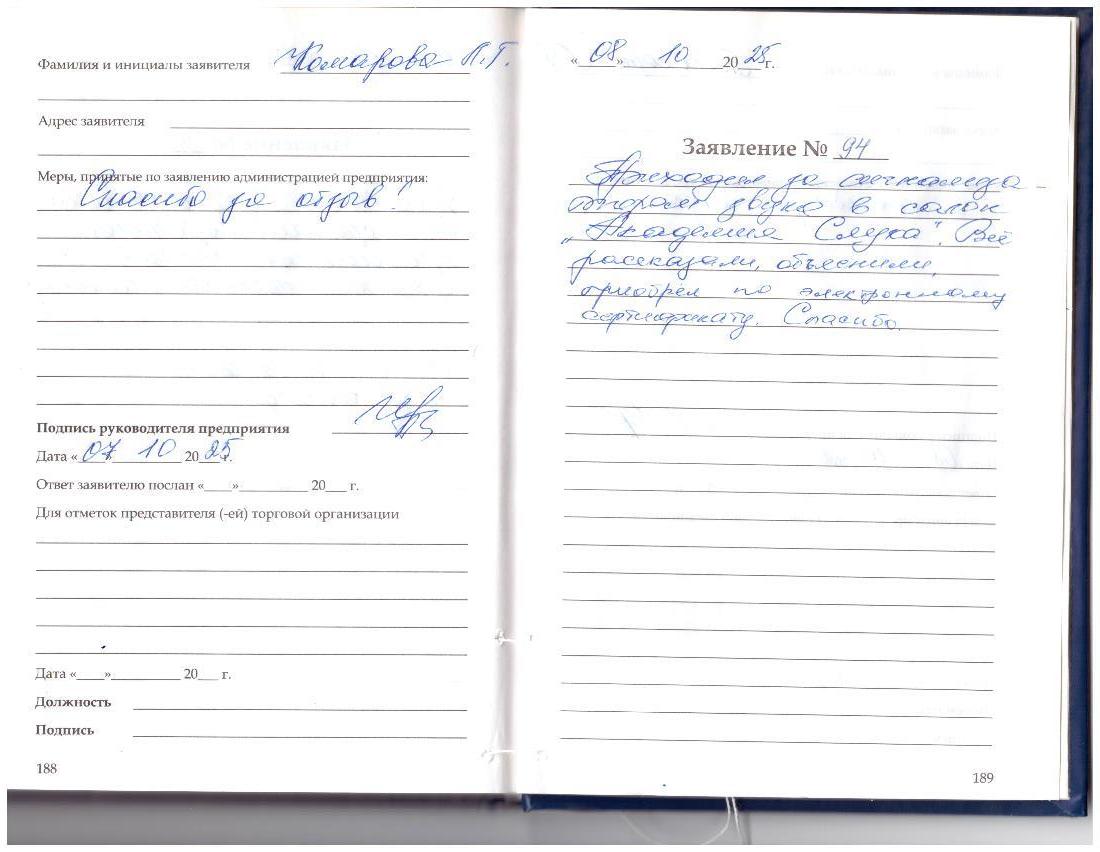 Фамилия и инициалы заявителя Комарова Л.Г.
Адрес заявителя
Меры, принятые по заявлению администрацией предприятия:
Спасибо за отзыв!
Подпись руководителя предприятия
Дата «07 10 2025 г.
Ответ заявителю послан «____»__________ 20___ г.
Для отметок представителя (-ей) торговой организации
Дата «____»__________ 20___ г.
Должность
Подпись
188
«08» 10 2025 г.
Заявление № 94
Приходил за сигнализа-
тором звука в салон
"Академия Слуха". Всё
рассказали, объяснили,
приобрёл по электронному
сертификату. Спасибо.
189